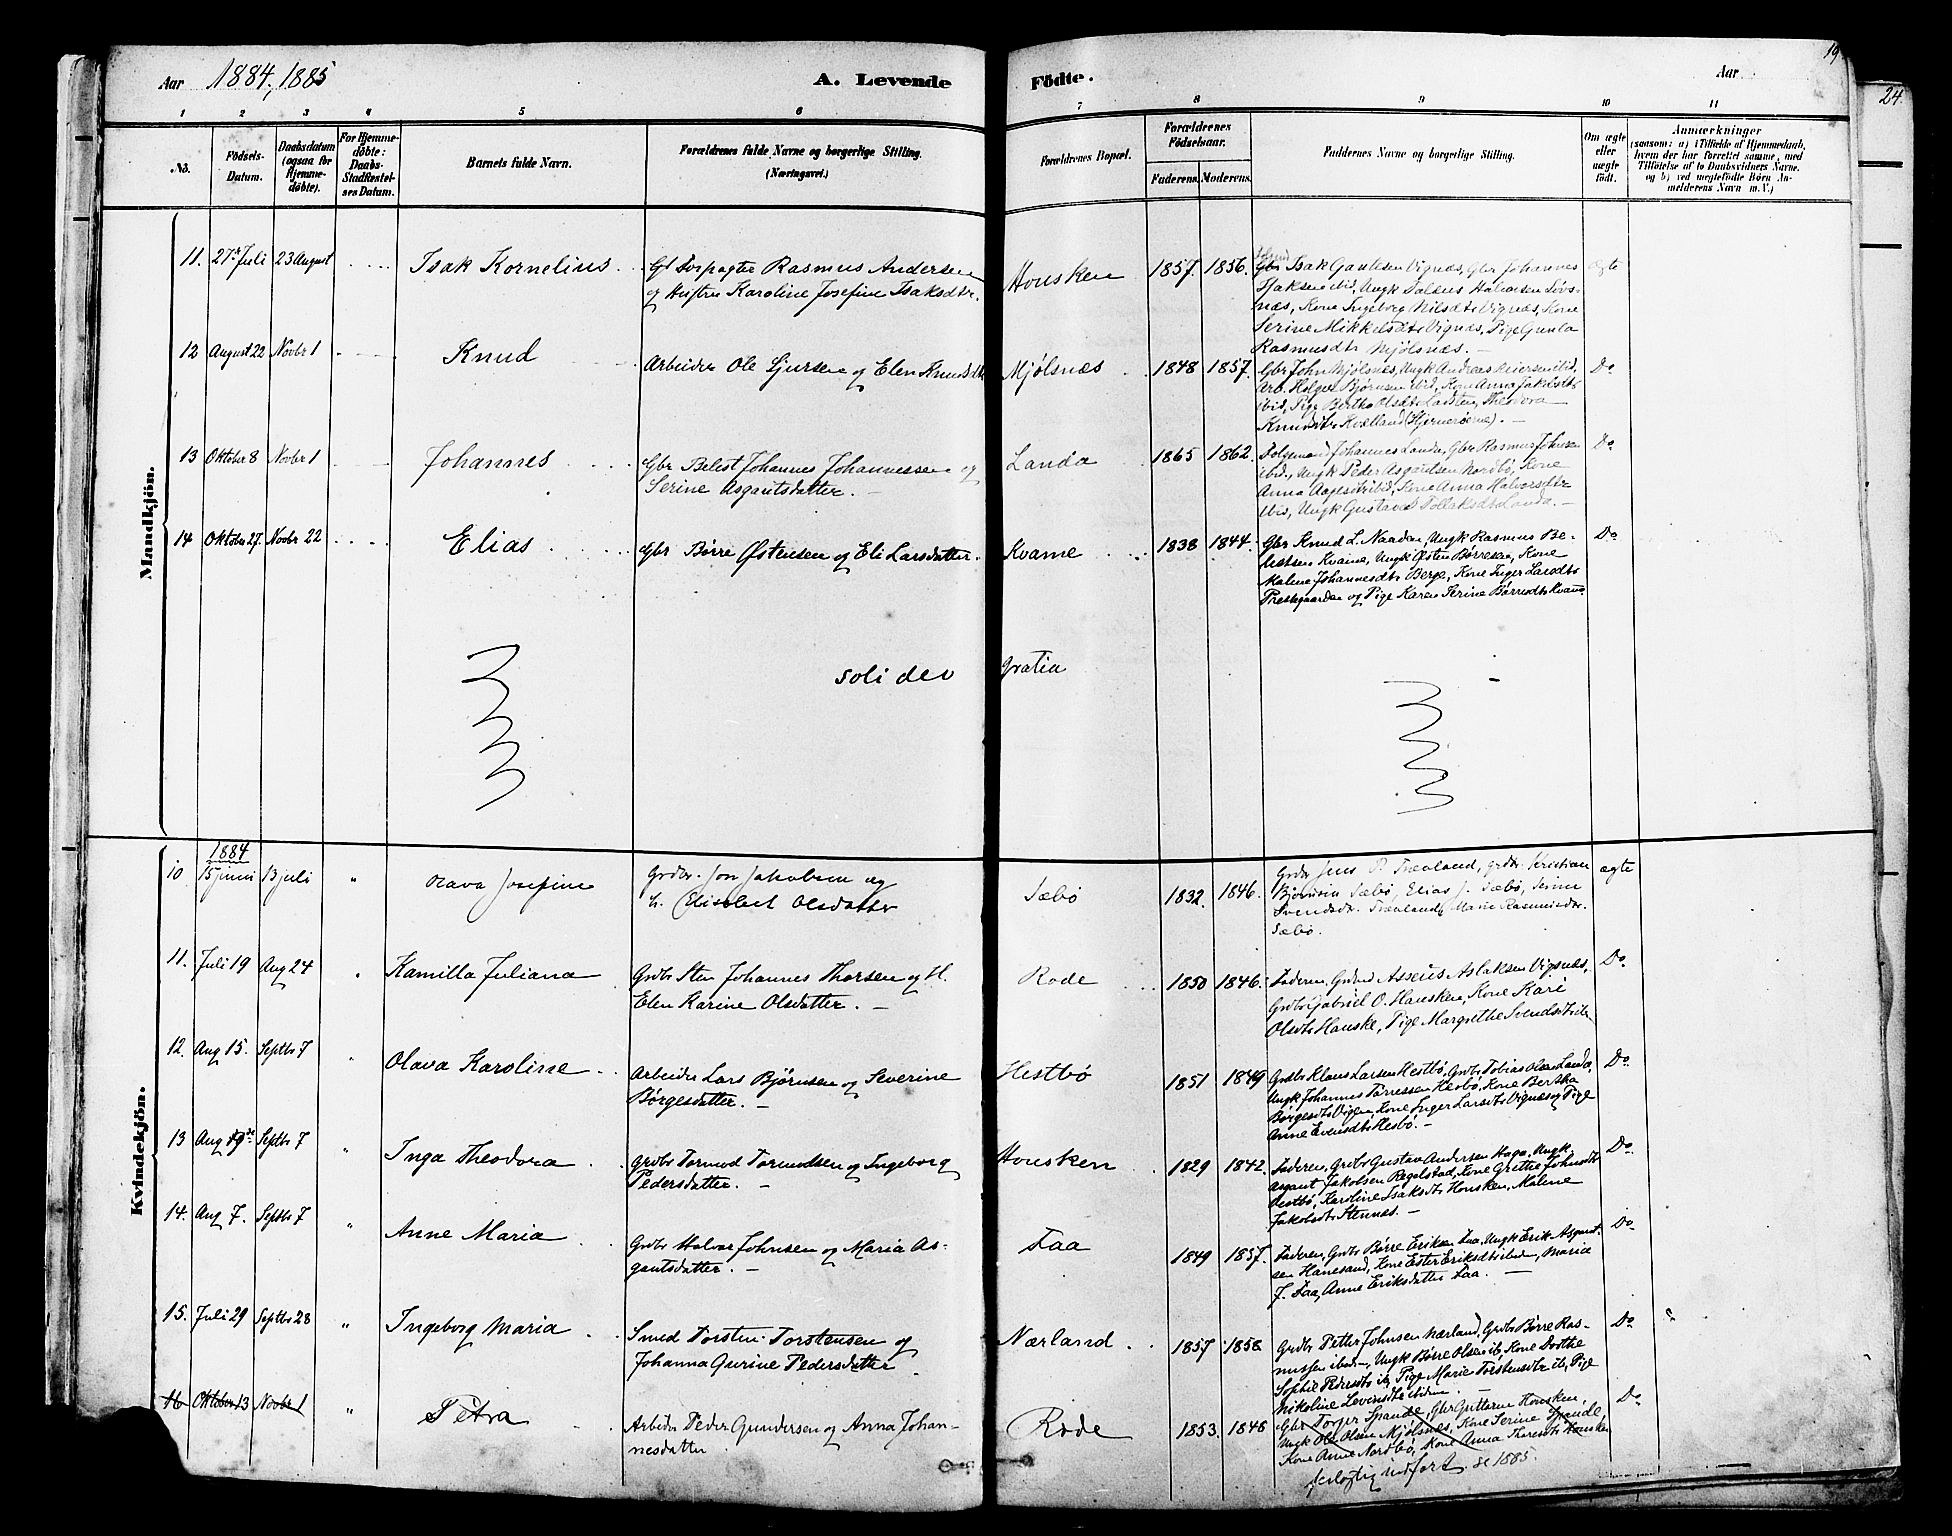 Aar 1884, 1885 A. Levende Födte. Aar 19
24
1 2 3 4 5 6 7 8 9 10 11
No. Födsels-Datum. Daabsdatum (ogsaa for Hjemme-döbte). For Hjemme-döbte: Daabs-Stadfæstel-ses Datum. Barnets fulde Navn. Forældrenes fulde Navne og borgerlige Stilling. (Næringsvei.) Forældrenes Bopæl. Forældrenes Födselsaar. Faderens. Moderens. Faddernes Navne og borgerlige Stilling. Om ægte eller uægte födt. Anmærkninger (saasom: a) i Tilfælde af Hjemmedaab, hvem der har forrettet samme, med Tilföielse af to Daabsvidners Navne. og b) ved uægtefödte Börn An-melderens Navn m. V.)
Mandkjön.
11. 27 Juli 23 August Isak Kornelius Rasmus Andersen
og Hustru Karoline Josefine Isaksdtr. Housken 1857. 1856. Gbr Isak Gautesen Vignæs, Gbr Johannes ægte
Isaksen ibid, Ungk Halvorsen Løvs-
næs, Kone Ingeborg Nilsdtr Vignæs, Kone
Serine Mikkelsdtr Vignæs, Pige Gunla
Rasmusdtr Mjølsnæs. —
12 August 22 Novbr 1 Knud Arbeider Ole Sjursen og Elen Knudsdtr Mjølsnæs 1848 1857. Gbr John Mjølsnæs, Ungk Andreas ibid, Do
Arb. Holger Bjørnsen ibid, Kone Anna Jakobsdtr
ibid, Pige Berthe Olsdtr Theodora
Knudsdtr Kvælland (Hjernerøerne). —
13 Oktober 8 Novbr 1 Johannes Gbr Belest Johannes Johannessen og
Serine Asgautsdatter. — Landa 1865 1862. Johannes Landa, Gbr Rasmus Johnsen Do
ibid., Ungk Peder Asgautsen Nordbø, Kone
Anna ibid, Kone Anna Halvorsdtr
ibid, Ungk Gustava Tollaksdtr Landa. —
14 Oktober 27. Novbr 22 Elias Gbr Børre Østensen og Eli Larsdatter. Kvame 1838 1844. Gbr Knud L. Naaden, Ungk Rasmus Be- Do
lestsen Kvame, Ungk Østen Børresen, Kone
Malene Johannesdtr Berge, Kone Inger Larsdtr
Prestegaarden og Pige Karen Serine Børresdtr Kvame
soli deo gratia
Kvindekjön.
1884
10 15 juni 13 juli " Olava Josefine Grdbr. Jon Jakobsen og
h. Elisabet Olsdatter Sæbø 1832. 1846. Grdbr Jens P. Træaland, grdbr. Kristian ægte
Sæbø, Elias J. Sæbø, Serine
Svendsdtr. Træaland, Marie Rasmusdtr.
Sæbø.
11. Juli 19 Aug 24 " Kamilla Juliana Grdbr Sten Johannes Thorsen og H.
Elen Karine Olsdatter. — Rode 1850 1846. Faderen, Grdmd Asseus Aslaksen Vignæs, Do
Grdbr Gabriel O. Hausken, Kone Kari
Olsdtr Hauske, Pige Margrethe Svendsdtr
12. Aug 15. Septbr 7 " Olava Karoline Arbeider Lars Bjørnsen og Severine
Børgesdatter. — Hestbø 1851 1849 Grdbr Klaus Larsen Hestbø, Grdbr Tobias Olsen Landa, Do
Ungk Johannes Tørressen Hesbø, Kone Bertha
Børgesdtr Vignes, Kone Inger Larsdtr Vignæs og Pige
Anne Evensdtr Hesbø. —
13 Aug 19de Septbr 7 " Inga Theodora Grdbr Tormod Tormodsen og Ingeborg
Pedersdatter. — Housken 1829 1842. Faderen, Grdbr Gustav Andersen Haga, Ungk. Do
Asgaut Jakobsen Regelstad, Kone Grethe Johnsdtr
Vestbø, Karoline Isaksdtr Housken, Malene
Jakobsdtr Stennes. —
14. Aug 7. Septbr 7 " Anne Maria Grdbr Halvor Johnsen og Maria As-
gautsdatter. — Faa 1849 1857. Faderen, Grdbr Børre Eriksen Faa, Ungk Erik Asgaut- Do
sen Hanesand, Kone Ester Eriksdtr ibidem, Maria
J. Faa, Anne Eriksdatter Faa. —
15. Juli 29 Septbr 28 " Ingeborg Maria Smed Torsten Torstensen og
Johanna Gurine Pedersdatter. Nærland 1857 1858 Grdbr Petter Johnsen Nærland, Grdbr Børre Ras- Do
mussen ibid, Ungk Børre Olsen ib, Kone Dorthe
Sophie Pedersdtr ib, Pige Marie Torstensdtr ib, Pige
Nikoline Levinsdtr ibidem. —
16 Oktober 13 Novbr 1 " Petra Arbeider Peder Gundersen og Anna Johan-
nesdatter Rode 1853. 1848 Gbr Torger Spande, Gbr Guttorm Housken, Do
Ungk Ole Olsen Mjølsnæs, Kone Serine Spande,
Kone Anne Nordbø, Kone Anna Theresdtr Housken
feilagtig indført, se 1885.